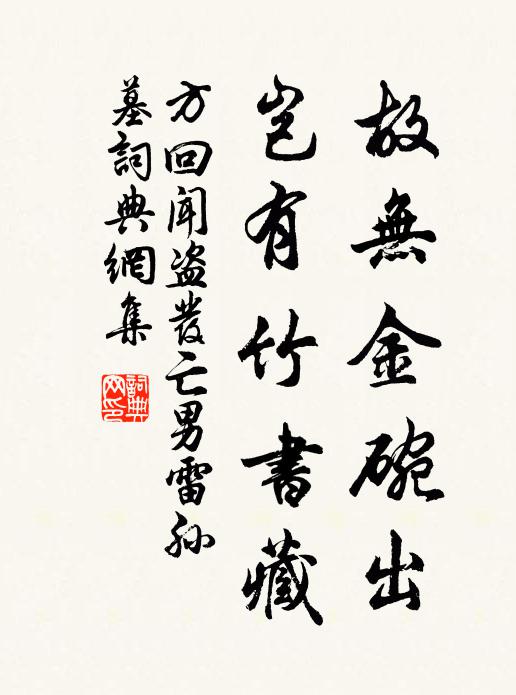 故無金碗出
豈有竹書藏
方回聞盗發亡男雷孫
墓詞典網集
詞典網印